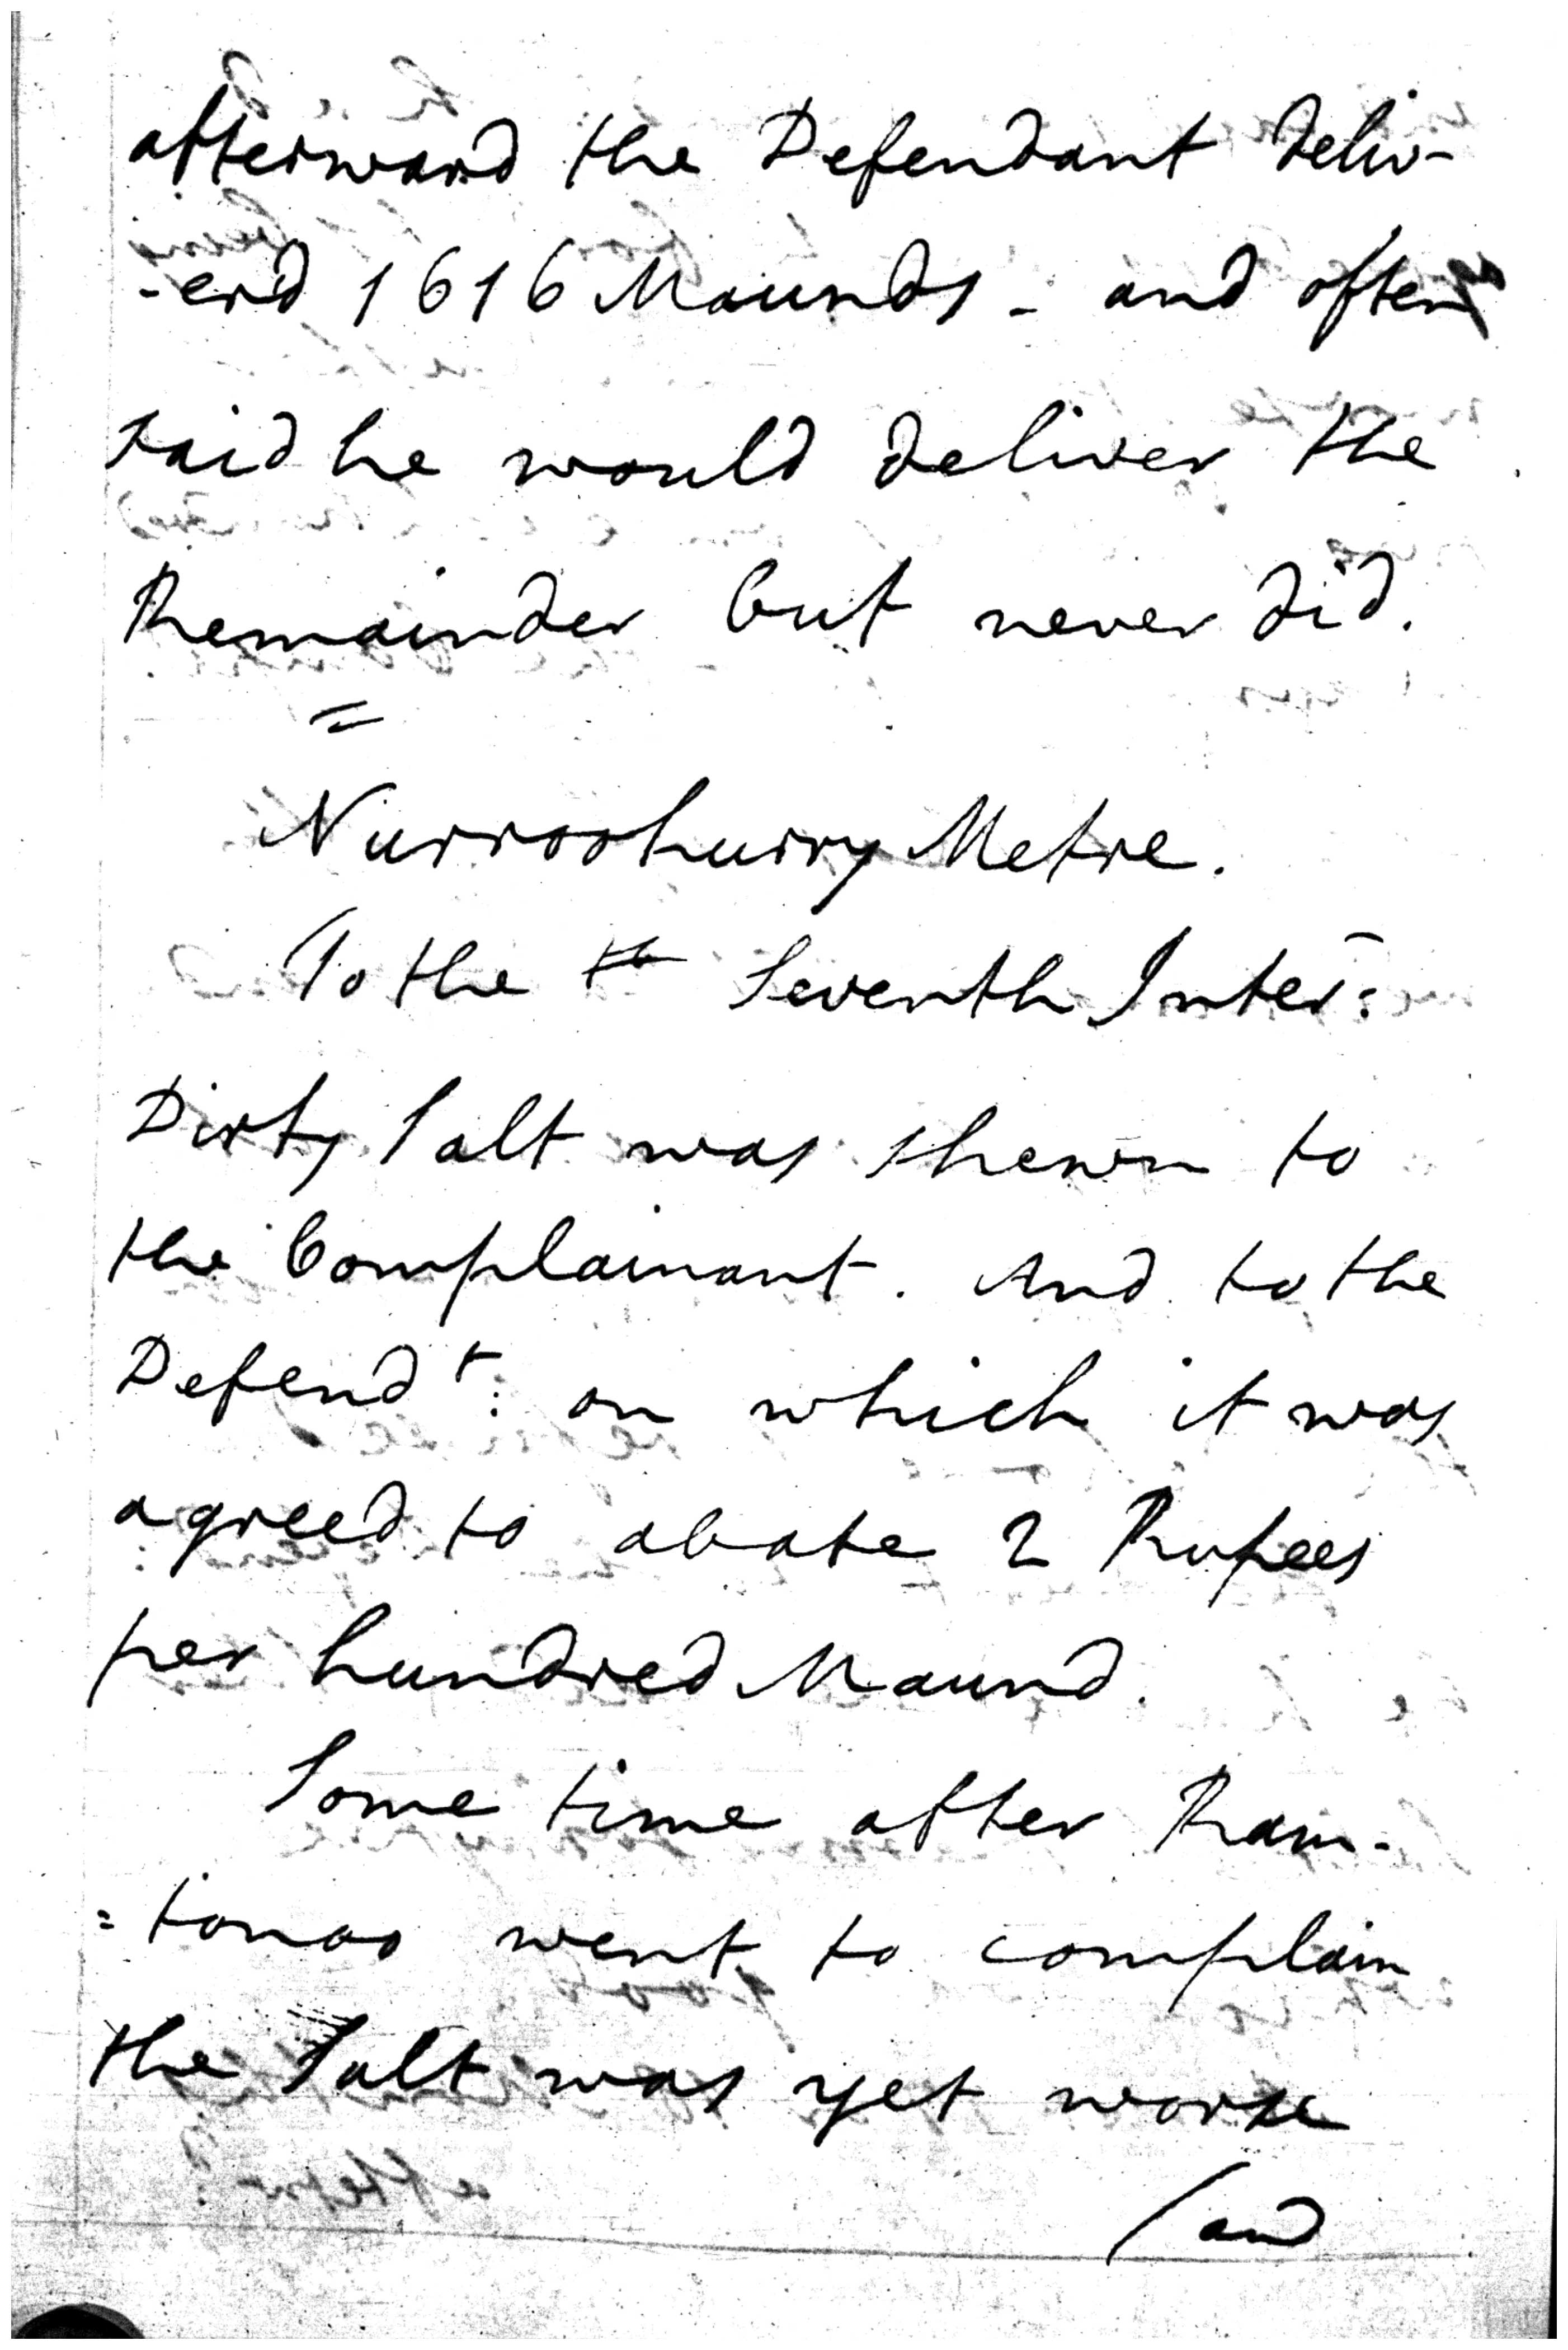 afterward the Defendant deliv-
-erd 1616 Maunds - and often
said he would deliver the
Remainder but never did.
=
Nurroohurry Metre.
To the Seventh Inter:
Dirty Salt was shewn to
the Complainant. And to the
Defendt: on which it was
agreed to abate 2 Rupees
per hundred Maund.
Some time after Ram-
=tonoo went to complain
the Salt was yet worse
(and